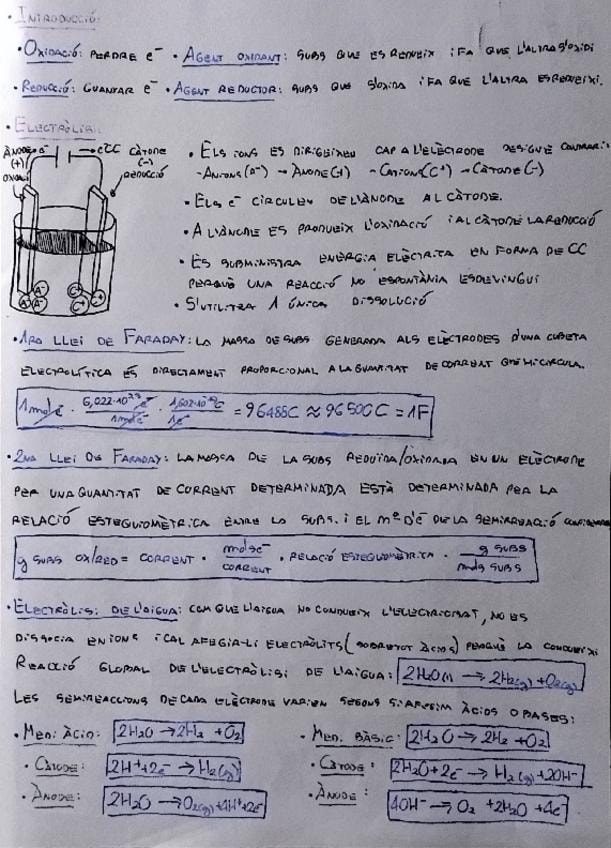 · INTRODUCCIÓ:
· OXIDACIÓ: PERDRE e⁻ · AGENT OXIDANT: SUBS QUE ES REDUEIX i FA QUE L'ALTRA S'OXIDI
· REDUCCIÓ: GUANYAR e⁻ · AGENT REDUCTOR: SUBS QUE S'OXIDA i FA QUE L'ALTRA ES REDUEIXI.
· ELECTRÒLISI:
ÀNODE (+) OXIDACIÓ e⁻ CC CÀTODE (-) REDUCCIÓ
A⁻ A⁻ A⁻ C⁺ C⁺ C⁺
· ELS IONS ES DIRIGEIXEN CAP A L'ELÈCTRODE DE SIGNE CONTRARI:
- ANIONS (A⁻) → ÀNODE (+) - CATIONS (C⁺) → CÀTODE (-)
· ELS e⁻ CIRCULEN DE L'ÀNODE AL CÀTODE.
· A L'ÀNODE ES PRODUEIX L'OXIDACIÓ i AL CÀTODE LA REDUCCIÓ
· ES SUBMINISTRA ENERGIA ELÈCTRICA EN FORMA DE CC
PERQUÈ UNA REACCIÓ NO ESPONTÀNIA ESDEVINGUI
· S'UTILITZA 1 ÚNICA DISSOLUCIÓ
· 1RA LLEI DE FARADAY: LA MASSA DE SUBS GENERADA ALS ELÈCTRODES D'UNA CUBETA
ELECTROLÍTICA ÉS DIRECTAMENT PROPORCIONAL A LA QUANTITAT DE CORRENT QUE HI CIRCULA.
1 mol e⁻ · 6,022·10²³ e⁻ / 1 mol e⁻ · 1,602·10⁻¹⁹ C / 1 e⁻ = 96488C ≈ 96500C = 1F
· 2NA LLEI DE FARADAY: LA MASSA DE LA SUBS REDUÏDA/OXIDADA EN UN ELÈCTRODE
PER UNA QUANTITAT DE CORRENT DETERMINADA ESTÀ DETERMINADA PER LA
RELACIÓ ESTEQUIOMÈTRICA ENTRE LA SUBS. i EL nº D'e⁻ DE LA SEMIREACCIÓ
g SUBS OX/RED = CORRENT · mols e⁻ / CORRENT · RELACIÓ ESTEQUIOMÈTRICA · g SUBS / mols SUBS
· ELECTRÒLISI DE L'AIGUA: COM QUE L'AIGUA NO CONDUEIX L'ELECTRICITAT, NO ES
DISSOCIA EN IONS i CAL AFEGIR-LI ELECTRÒLITS (SOBRETOT ÀCIDS) PERQUÈ LA CONDUEIXI
REACCIÓ GLOBAL DE L'ELECTRÒLISI DE L'AIGUA: 2H₂O(l) → 2H₂(g) + O₂(g)
LES SEMIREACCIONS DE CADA ELÈCTRODE VARIEN SEGONS SI AFEGIM ÀCIDS O BASES:
· MEDI ÀCID: 2H₂O → 2H₂ + O₂
· CÀTODE: 2H⁺ + 2e⁻ → H₂(g)
· ÀNODE: 2H₂O → O₂(g) + 4H⁺ + 2e⁻
· MEDI BÀSIC: 2H₂O → 2H₂ + O₂
· CÀTODE: 2H₂O + 2e⁻ → H₂(g) + 2OH⁻
· ÀNODE: 4OH⁻ → O₂ + 2H₂O + 4e⁻